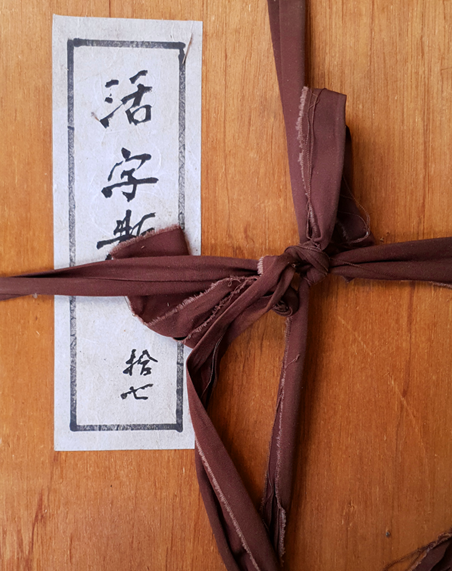 活字
拾七